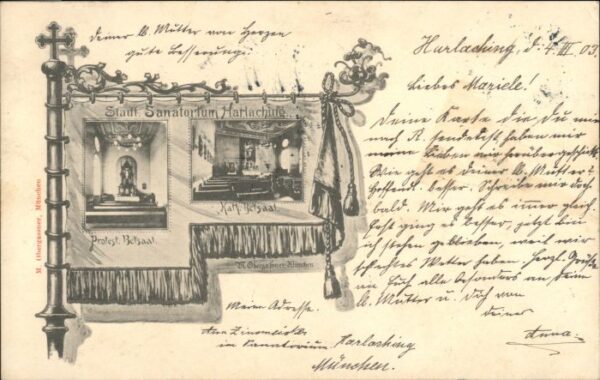 deiner lb. Mutter von Herzen
gute Besserung.
Harlaching, d. 4. III 03.
Liebes Mariele!
Deine Karte die Du mir
nach A. sendetest haben mir
meine Lieben mir herübergeschickt.
Wie geht es deiner lb. Mutter?
Hoffentl. besser. Schreibe mir doch
bald. Mir geht es immer gleich.
ging es besser, jetzt bin
ich stehen geblieben, weil wir
schlechtes Wetter haben. Herzl. Grüße
an Euch alle besonders an deine
lb. Mutter u. dich von
deiner
Anna.
Städt. Sanatorium Harlaching.
Protest. Betsaal.
Kath. Betsaal.
M. Obergassner-München
M. Obergassner, München
Meine Adresse.
Anna
im Sanatorium Harlaching
München.